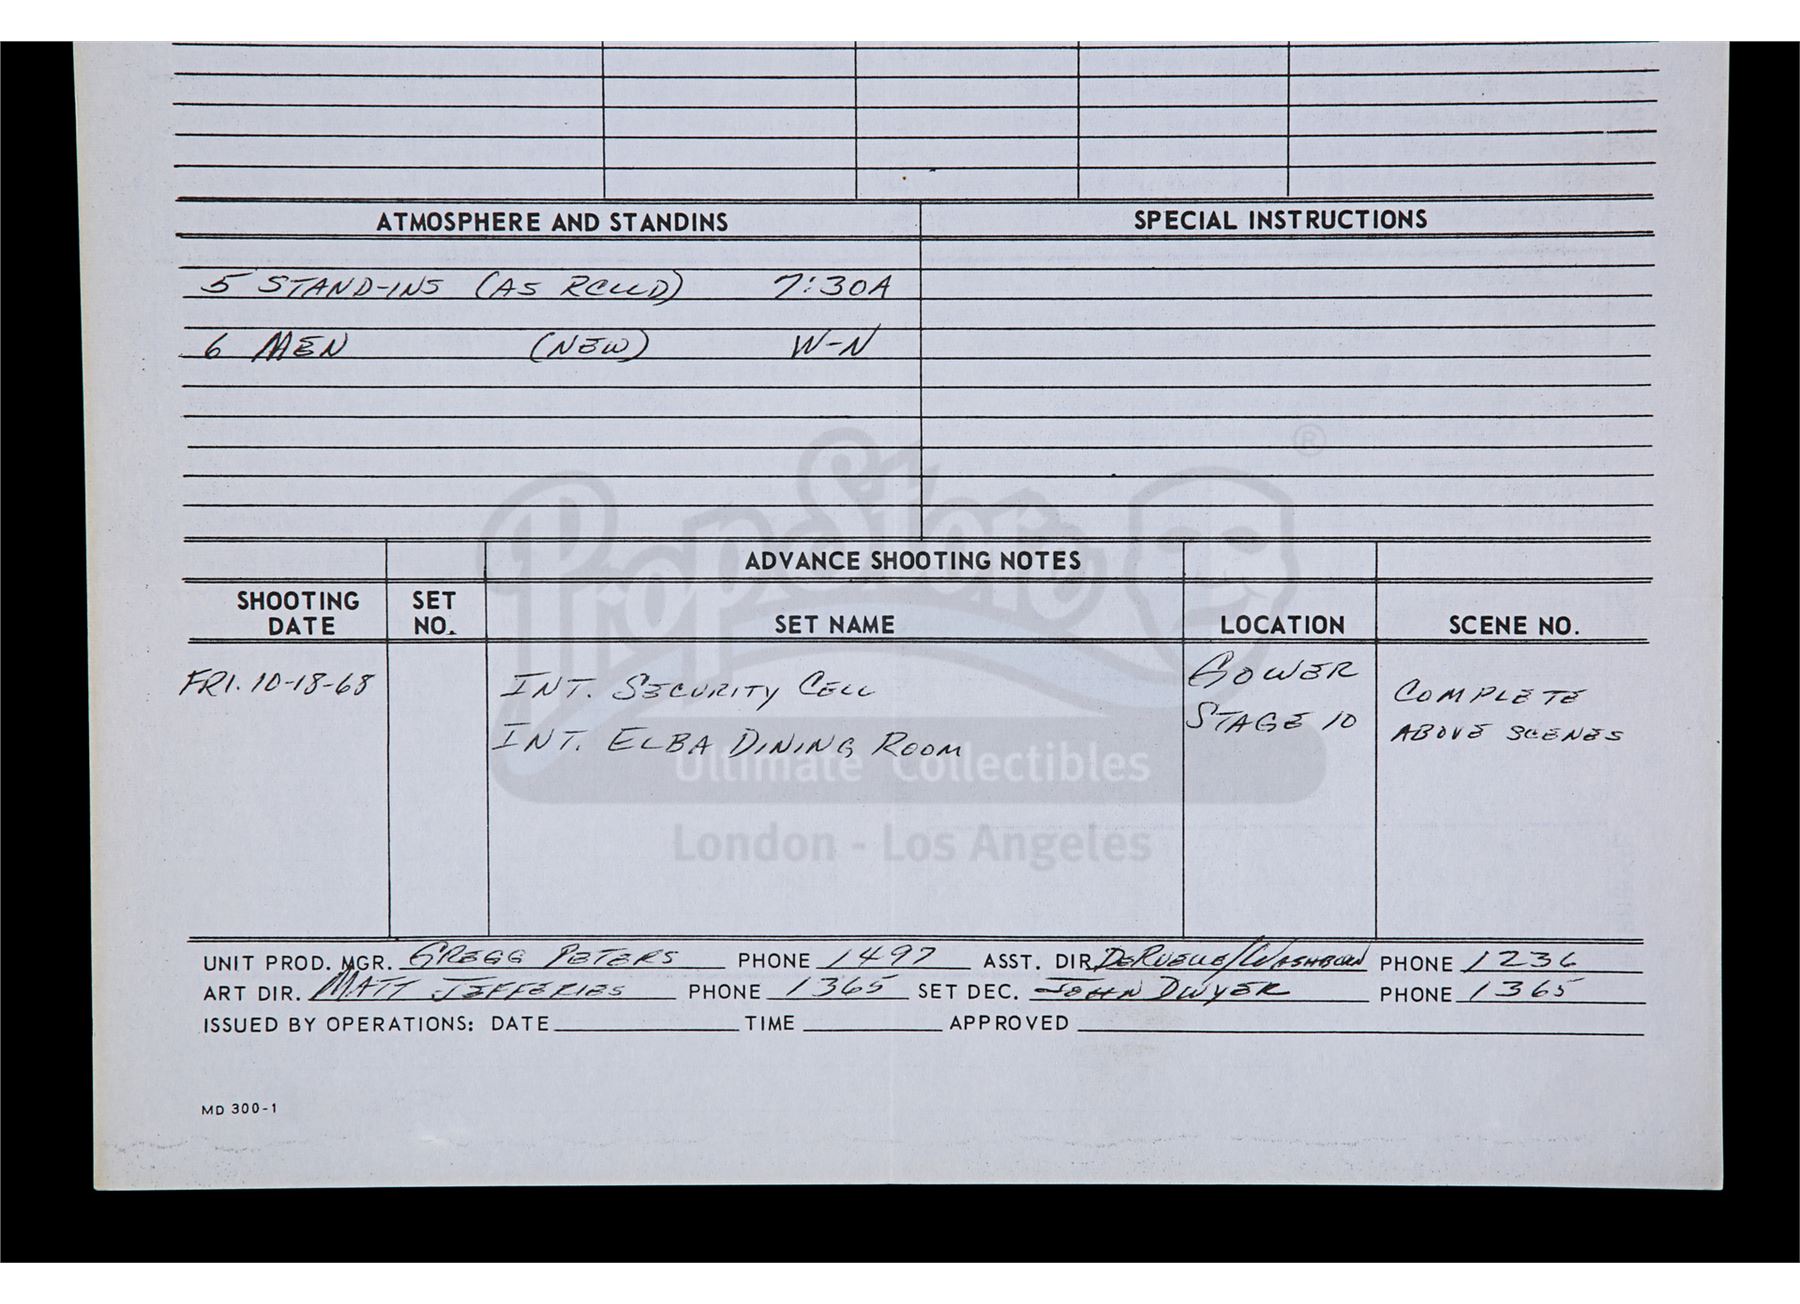 ATMOSPHERE AND STANDINS SPECIAL INSTRUCTIONS
5 STAND-INS (AS RCLLD) 7:30A
6 MEN (NEW) W-N
ADVANCE SHOOTING NOTES
SHOOTING DATE SET NO. SET NAME LOCATION SCENE NO.
FRI. 10-18-68 INT. SECURITY CELL GOWER COMPLETE
INT. ELBA DINING ROOM STAGE 10 ABOVE SCENES
PropStore ®
Ultimate Collectibles
London - Los Angeles
UNIT PROD. MGR. GREGG PETERS PHONE 1497 ASST. DIR. DERUELLE/WASHBURN PHONE 1236
ART DIR. MATT JEFFERIES PHONE 1365 SET DEC. JOHN DWYER PHONE 1365
ISSUED BY OPERATIONS: DATE TIME APPROVED
MD 300-1